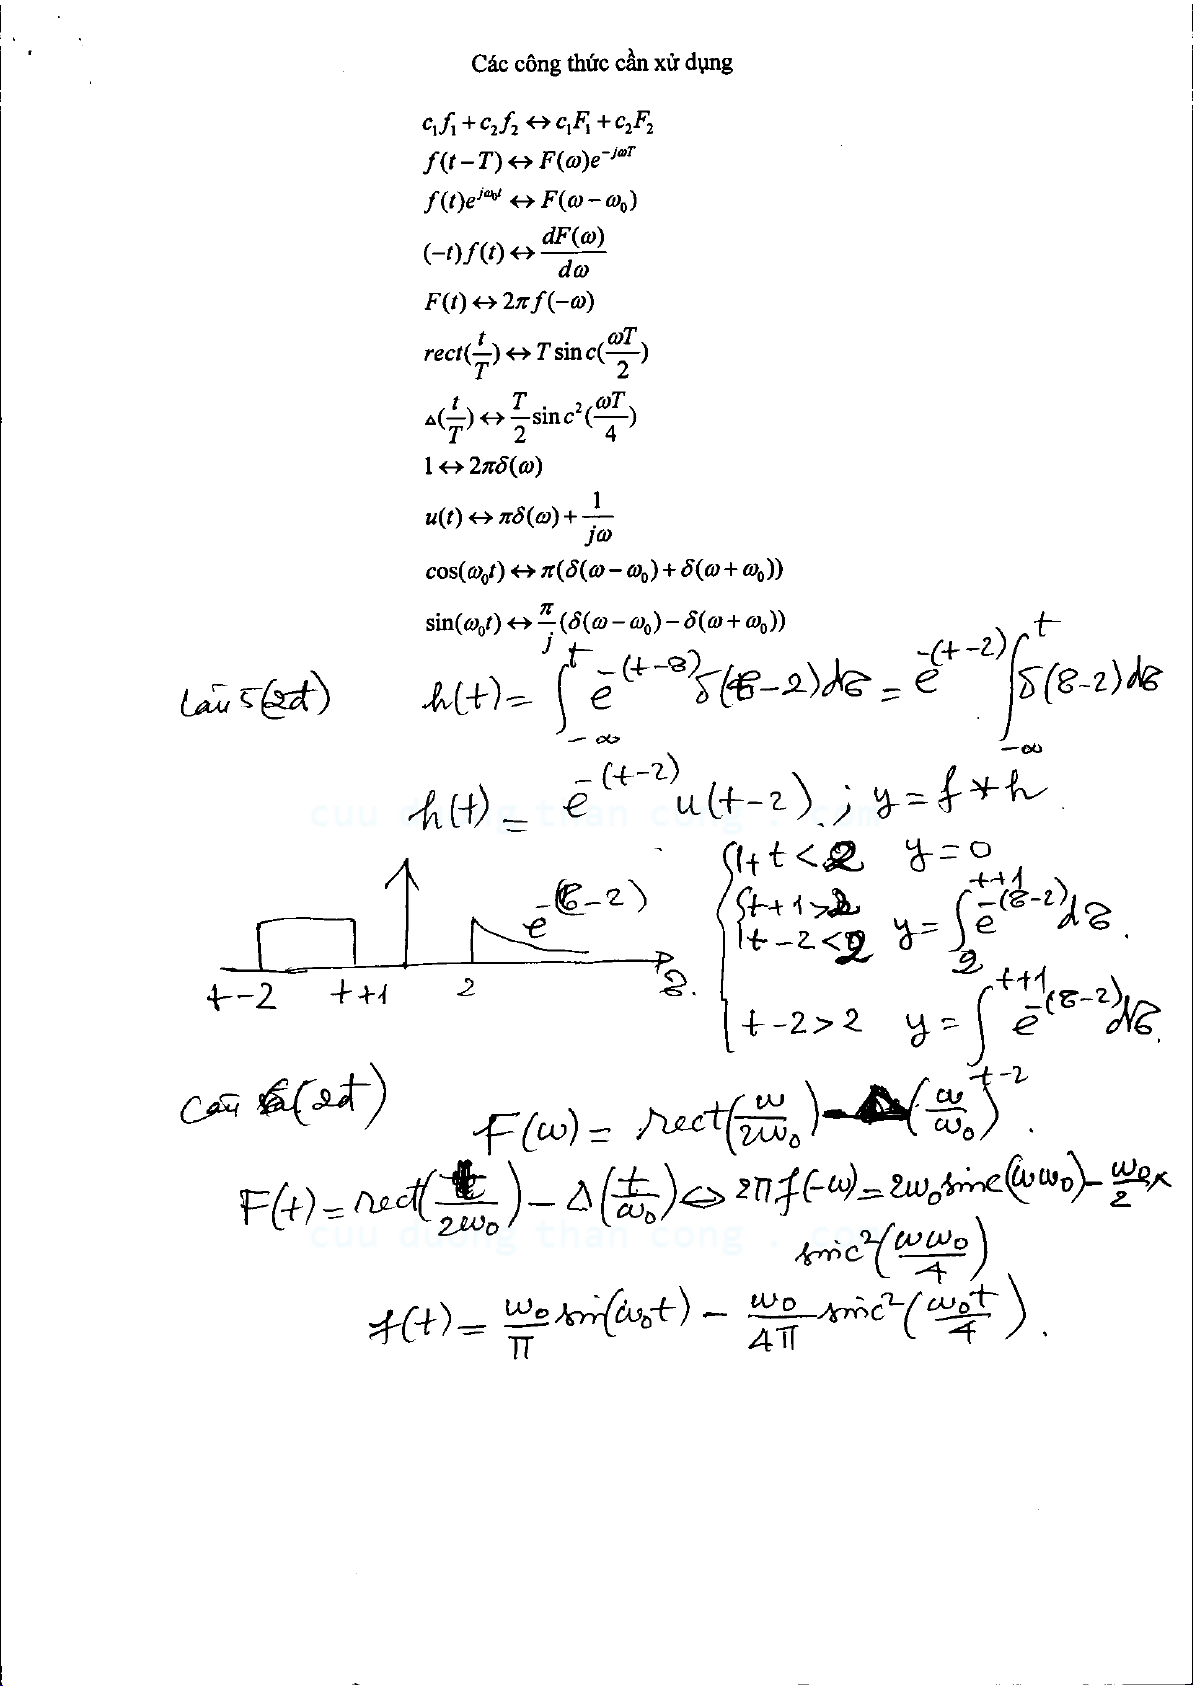 Các công thức cần xử dụng
c₁f₁ + c₂f₂ ↔ c₁F₁ + c₂F₂
f(t−T) ↔ F(ω)e^{−jωT}
f(t)e^{jω₀t} ↔ F(ω−ω₀)
(−t)f(t) ↔ dF(ω)/dω
F(t) ↔ 2πf(−ω)
rect(t/T) ↔ T sin c(ωT/2)
Δ(t/T) ↔ T/2 sin c²(ωT/4)
1 ↔ 2πδ(ω)
u(t) ↔ πδ(ω) + 1/jω
cos(ω₀t) ↔ π(δ(ω−ω₀)+δ(ω+ω₀))
sin(ω₀t) ↔ π/j (δ(ω−ω₀)−δ(ω+ω₀))
Câu 5(2đ) h(t) = ∫_{−∞}^{t} e^{−(t−τ)} δ(τ−2)dτ = e^{−(t−2)} ∫_{−∞}^{t} δ(τ−2)dτ
h(t) = e^{−(t−2)} u(t−2). ; y = f * h
cuu duong than cong . com
1+t<2 y=0
t+1>2
t−2<2 y = ∫_{2}^{t+1} e^{−(τ−2)} dτ.
t−2>2 y = ∫_{t−2}^{t+1} e^{−(τ−2)} dτ.
e^{−(τ−2)}
t−2 t+1 2 τ.
Câu (2đ) F(ω) = rect(ω/2ω₀) − Δ(ω/ω₀).
F(t) = rect(t/2ω₀) − Δ(t/ω₀) ⇔ 2πf(−ω) = 2ω₀sinc(ωω₀) − ω₀/2 ×
cuu duong than cong . com
sinc²(ωω₀/4)
f(t) = ω₀/π sin(ω₀t) − ω₀/4π sinc²(ω₀t/4).